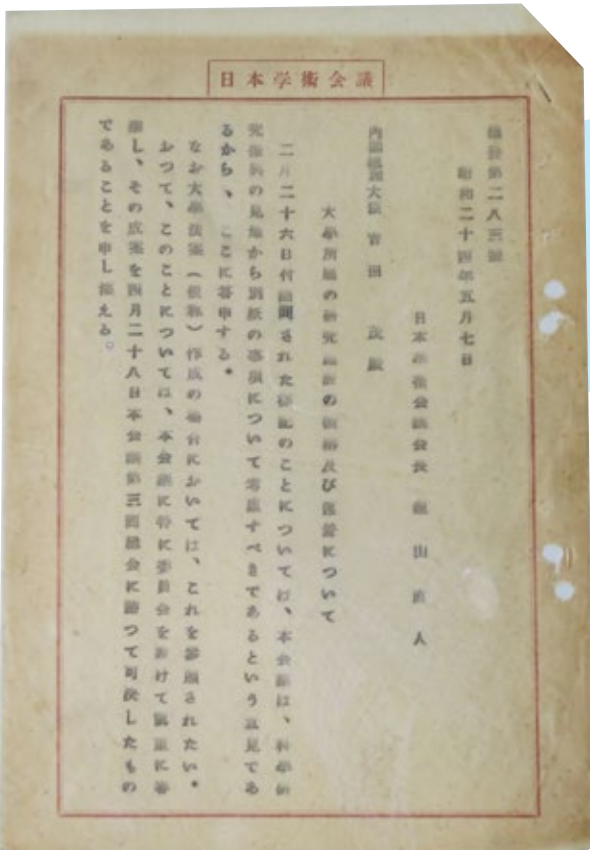 日本学術会議
総発第二八三號
昭和二十四年五月七日
日本学術会議会長 龜山直人
内閣総理大臣 吉田 茂殿
大學所属の研究施設の 及び について
二月二十六日付諮問された標記のことについては、本会議は、科學研
究 の見地から別紙の事項について考慮すべきであるという意見であ
るから、ここに答申する。
なお大學法案(假称)作成の場合においては、これを参照されたい。
おつて、このことについては、本会議に特に委員会を設けて慎重に審
議し、その成案を四月二十八日本会議第三回総会に諮つて可決したもの
であることを申し添える。